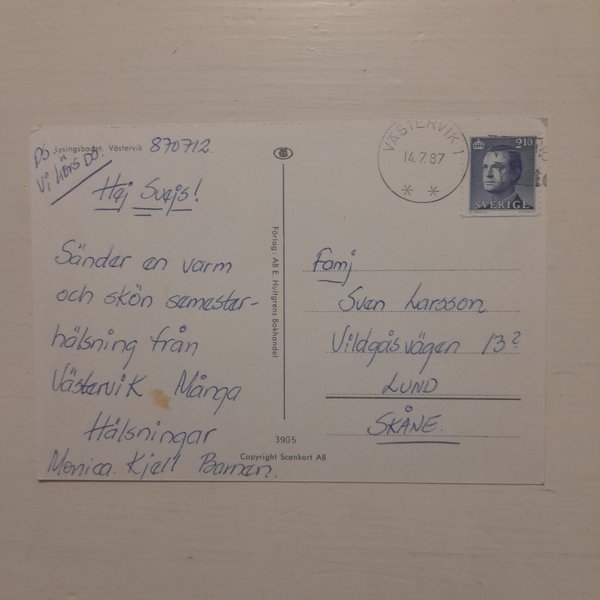 Lysingsbadet, Västervik
870712.
DS
Vi hörs DS.
Hej Svejs!
Sänder en varm
och skön semester-
hälsning från
Västervik Många
Hälsningar
Monica. Kjell Barnen.
Förlag: AB E. Hultgrens Bokhandel
3905
Copyright Scankort AB
VÄSTERVIK 1
14.7.87
2.10
SVERIGE
Famj
Sven Larsson
Vildgåsvägen 13?
LUND
SKÅNE.